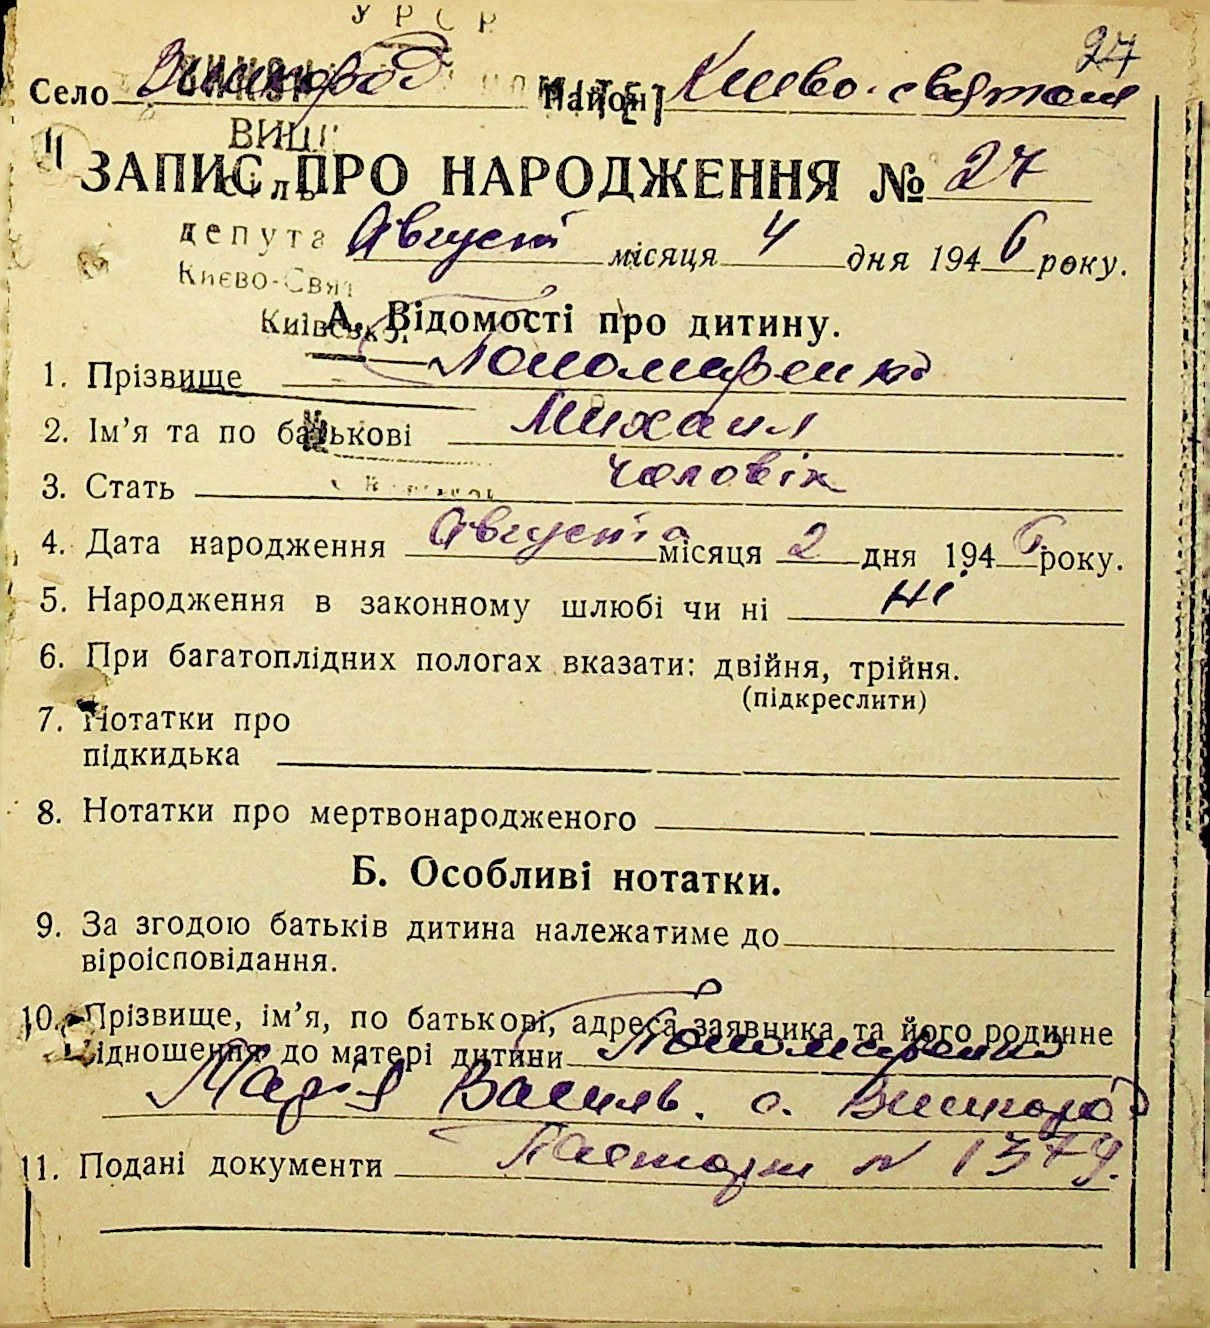 УРСР
27
Село Вишгород Район Києво-святош
ВИШ
ЗАПИС ПРО НАРОДЖЕННЯ № 27
депута Август місяця 4 дня 1946 року.
Києво-Свят
Київської
А. Відомості про дитину.
1. Прізвище Пономаренко
2. Ім'я та по батькові Михаил
3. Стать чоловік
4. Дата народження Августа місяця 2 дня 1946 року.
5. Народження в законному шлюбі чи ні ні
6. При багатоплідних пологах вказати: двійня, трійня.
(підкреслити)
7. Нотатки про
підкидька
8. Нотатки про мертвонародженого
Б. Особливі нотатки.
9. За згодою батьків дитина належатиме до
віроісповідання.
10. Прізвище, ім'я, по батькові, адреса заявника та його родинне
відношення до матері дитини Пономаренко
Марія Василь. с. Вишгород
11. Подані документи Паспорт № 1379.